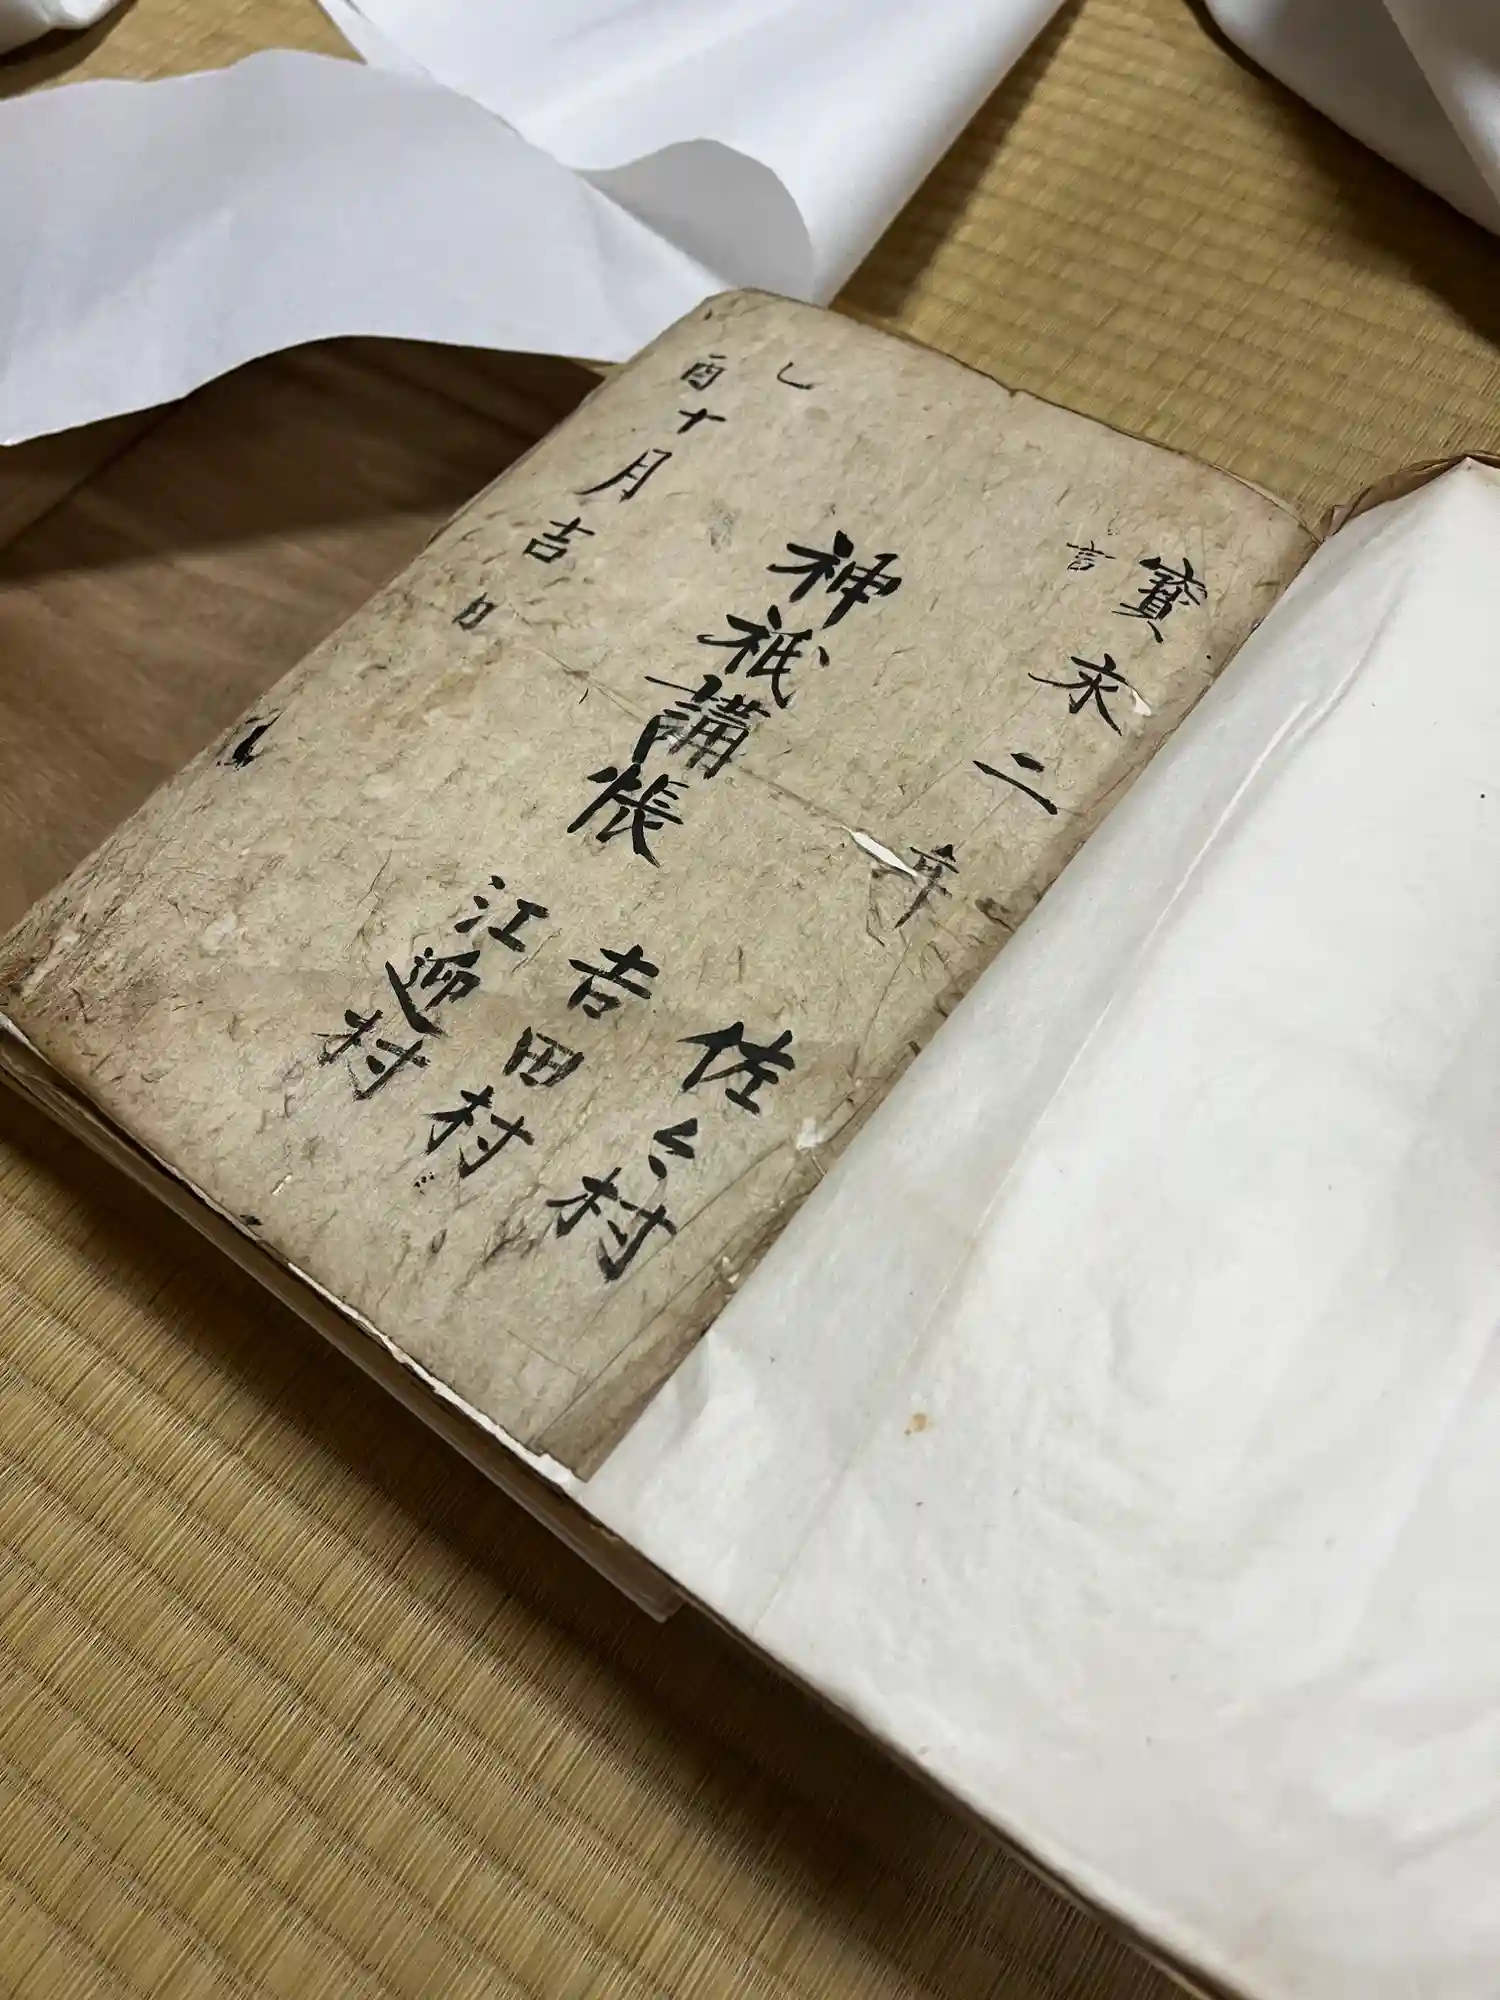 寶永二年
乙
酉十月吉日
神祇講帳
佐々村
吉田村
江迎村